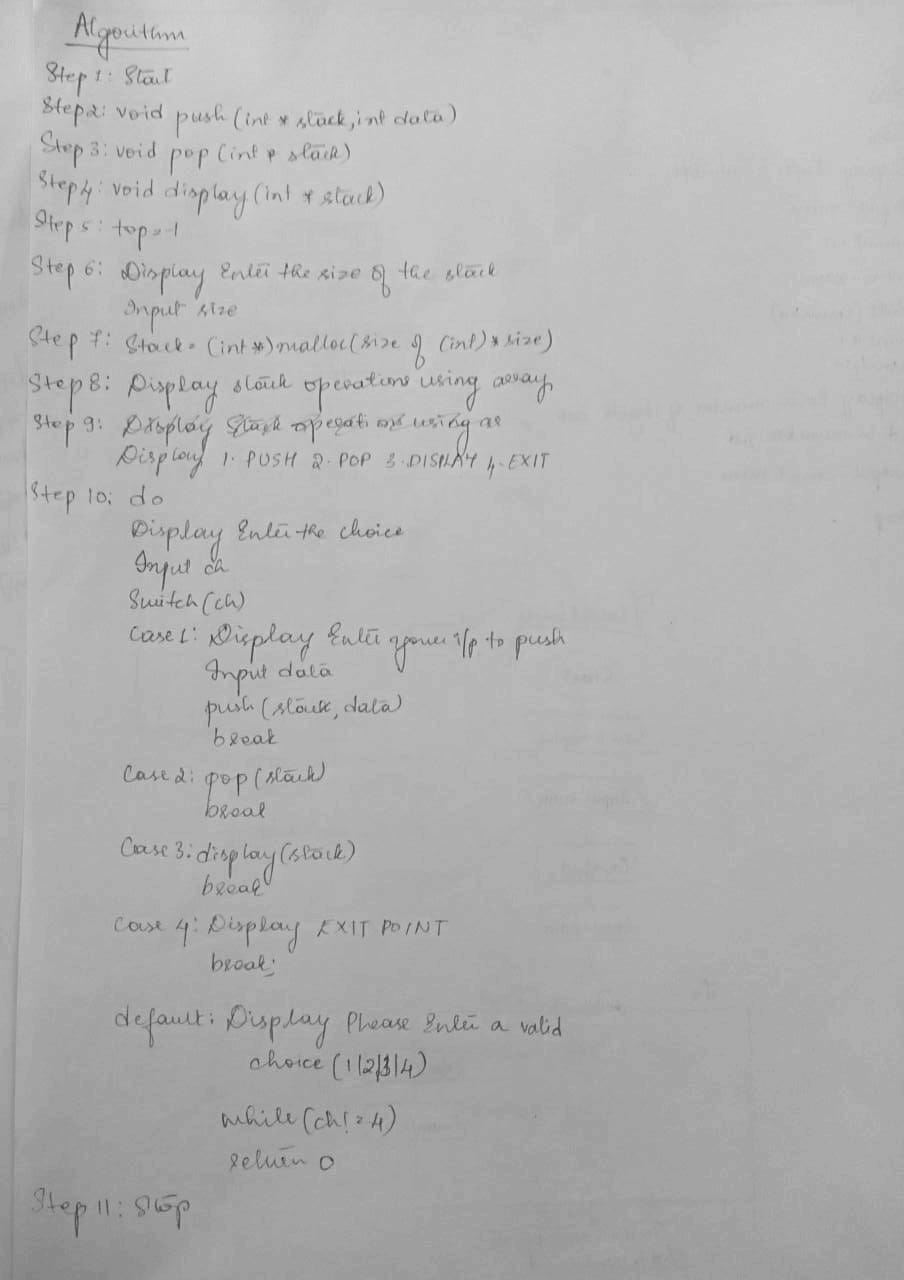 Algorithm
Step 1: Start
Step2: void push (int * stack, int data)
Step 3: void pop (int * stack)
Step 4: void display (int * stack)
Step 5: top=-1
Step 6: Display Enter the size of the stack
Input size
Step 7: Stack = (int *) malloc(size of (int) * size)
Step 8: Display stack operations using array
Step 9: Display Stack operations using ar
Display 1. PUSH 2. POP 3. DISPLAY 4. EXIT
Step 10: do
Display Enter the choice
Input ch
Switch (ch)
Case 1: Display Enter your i/p to push
Input data
push (stack, data)
break
Case 2: pop (stack)
break
Case 3: display (stack)
break
Case 4: Display EXIT POINT
break;
default: Display Please Enter a valid
choice (1|2|3|4)
while (ch! = 4)
return 0
Step 11: Stop